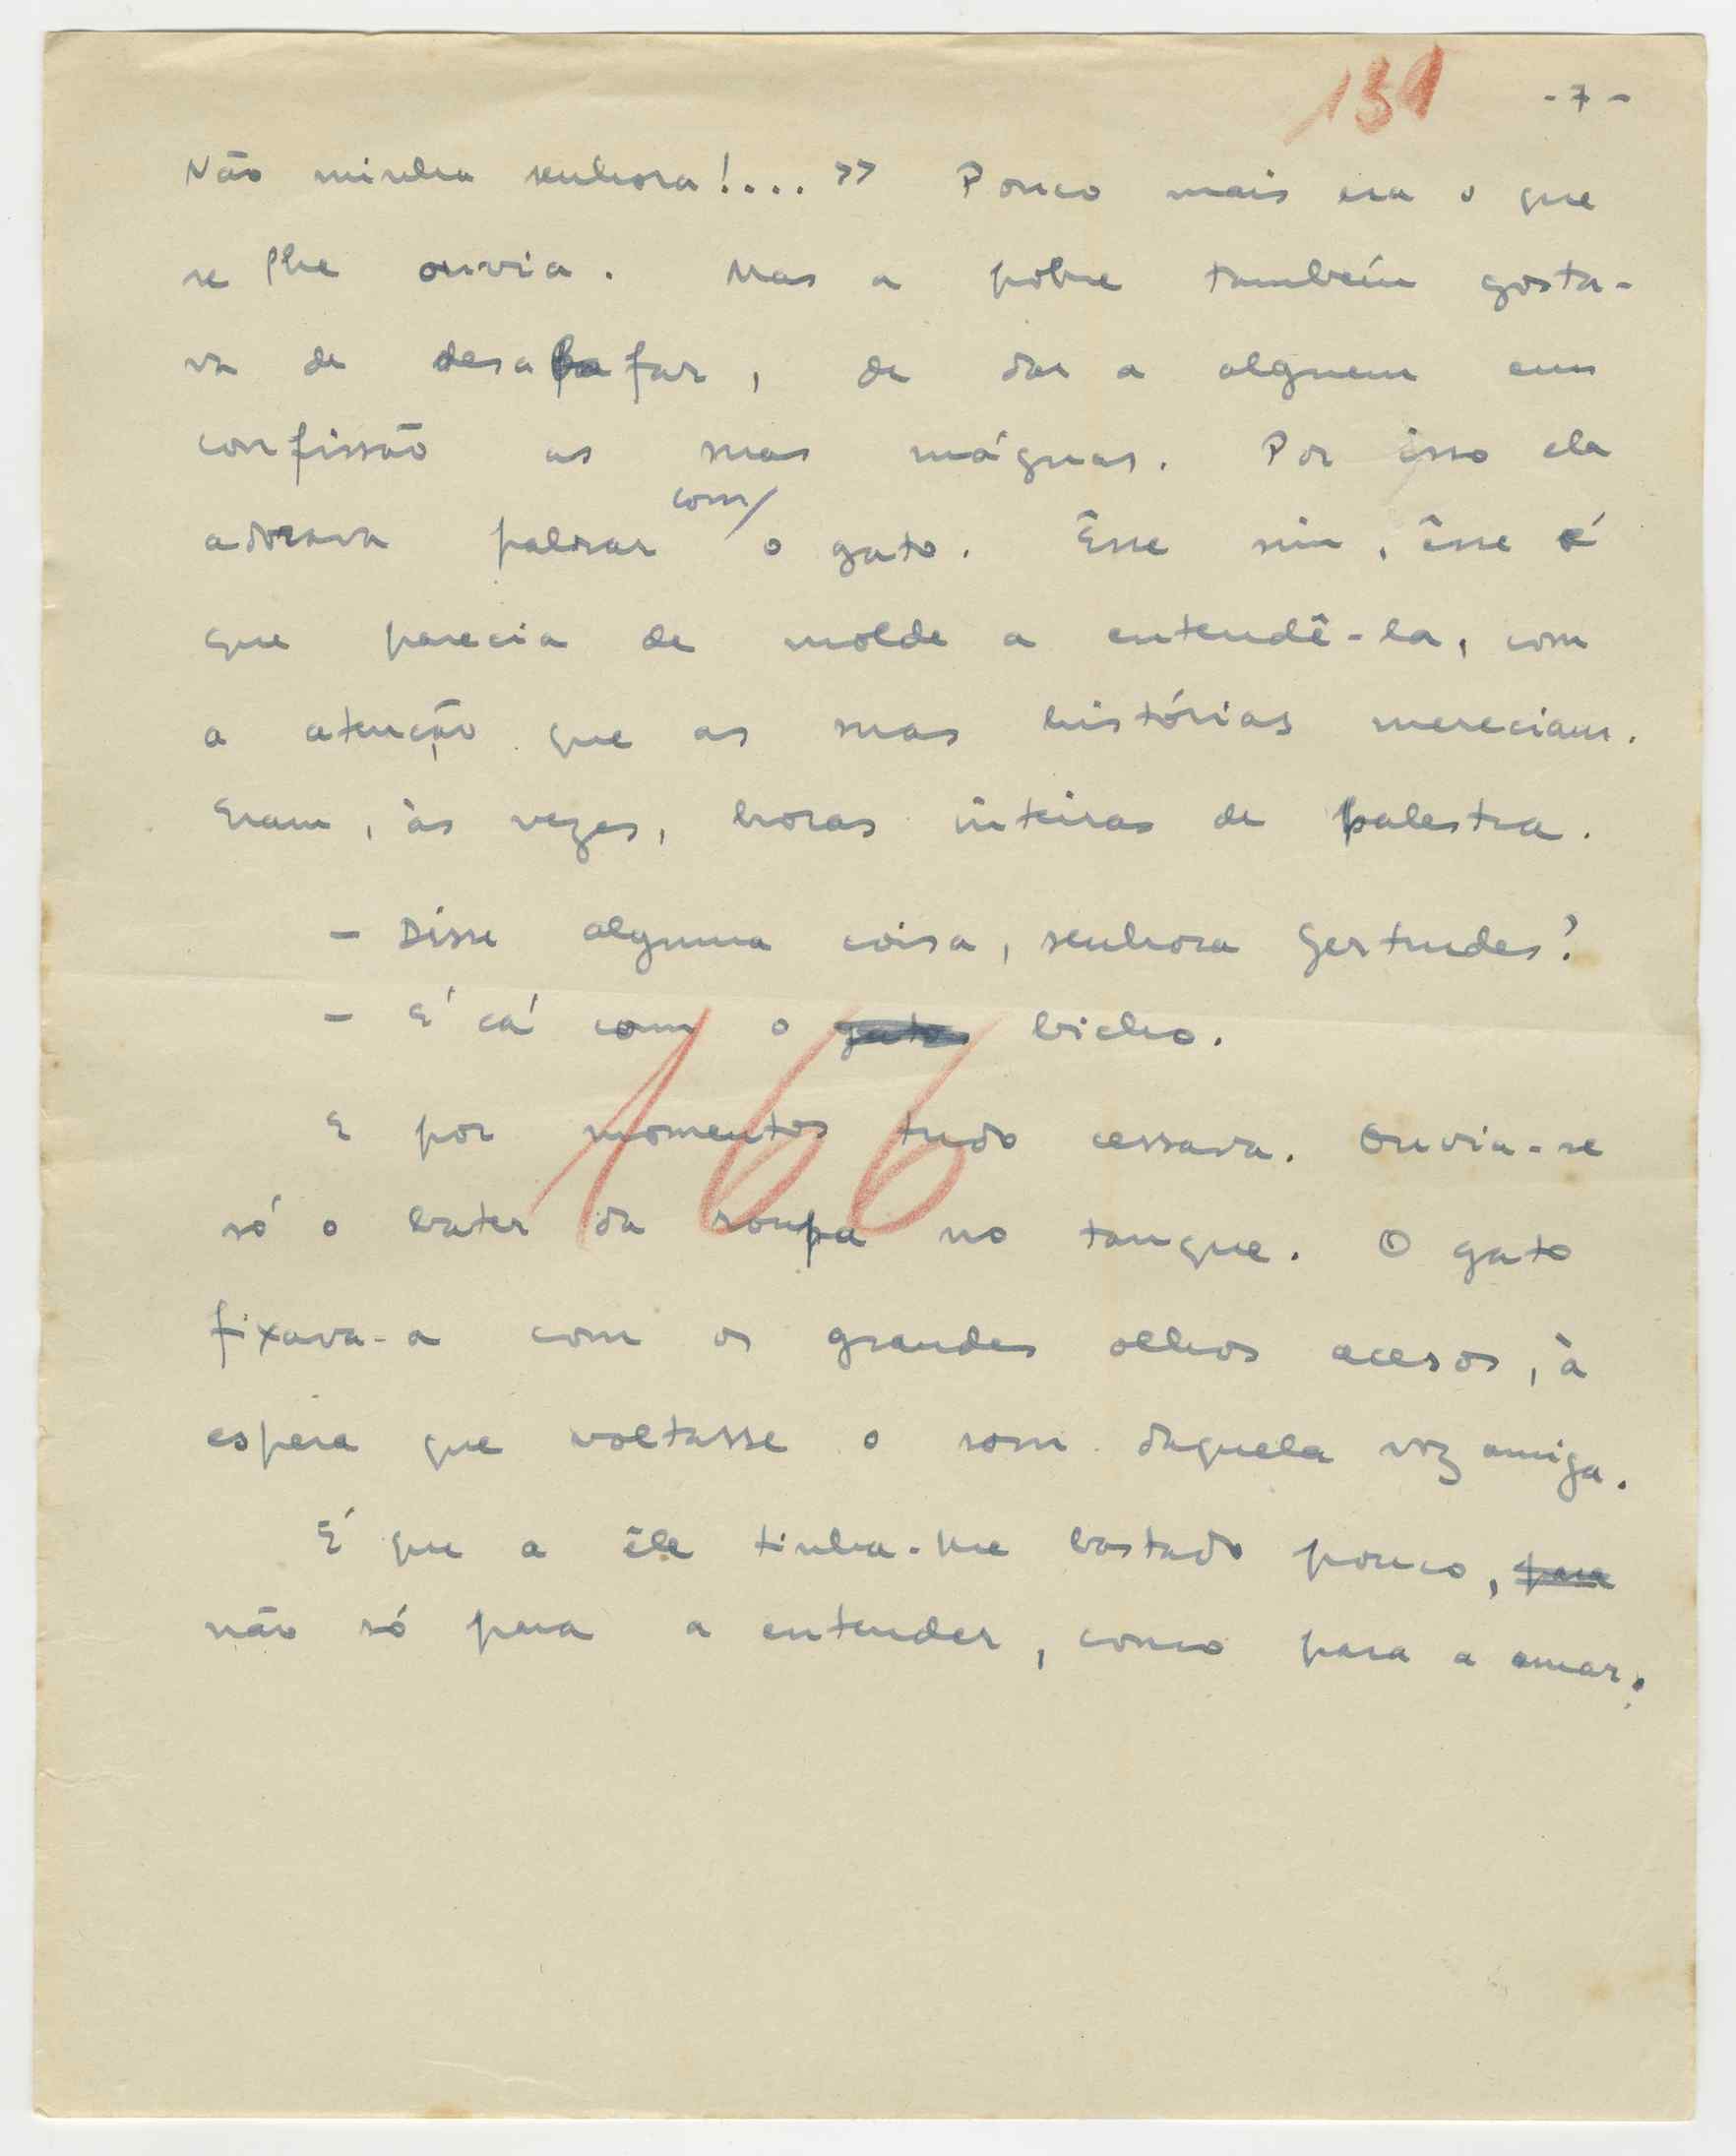 131 - 7 -
Não minha senhora!.... » Pouco mais era o que
se lhe ouvia. Mas a pobre também gosta-
va de desabafar, de dar a alguem em
confissão as suas máguas. Por isso ela
com/
adorava palrar o gato. Êsse sim, êsse é
que parecia de molde a entendê-la, com
a atenção que as suas histórias mereciam.
Eram, às vezes, horas inteiras de palestra.
- Disse alguma coisa, senhora Gertrudes?
- É cá com o gato bicho.
166
E por momentos tudo cessava. Ouvia-se
só o bater da roupa no tanque. O gato
fixava-a com os grandes olhos acesos, à
espera que voltasse o som daquela voz amiga.
É que a êle tinha-lhe bastado pouco, para
não só para a entender, como para a amar.